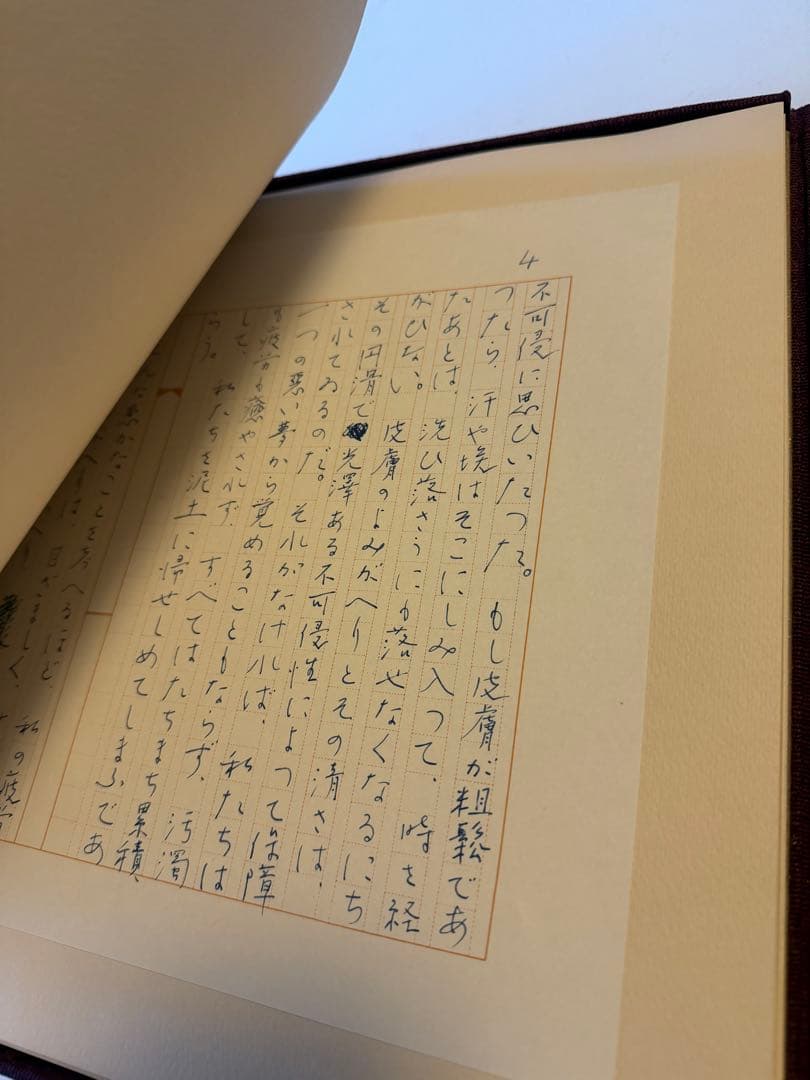 4
不可侵に思ひいたつた。もし皮膚が粗鬆であ
つたら、汗や埃はそこにしみ入つて、時を経
たあとは、洗ひ落さうにも落せなくなるにち
がひない。皮膚のよみがへりとその清さは、
その円滑で光澤ある不可侵性によつて保障
されてゐるのだ。それがなければ、私たちは
一つの悪い夢から覚めることもならず、汚濁
も疲労も癒やされず、すべてはたちまち累積、
して、私たちを泥土に帰せしめてしまふであ
らう。
んな愚かなことを考へるほど、私の疲労
は、目ざましく、